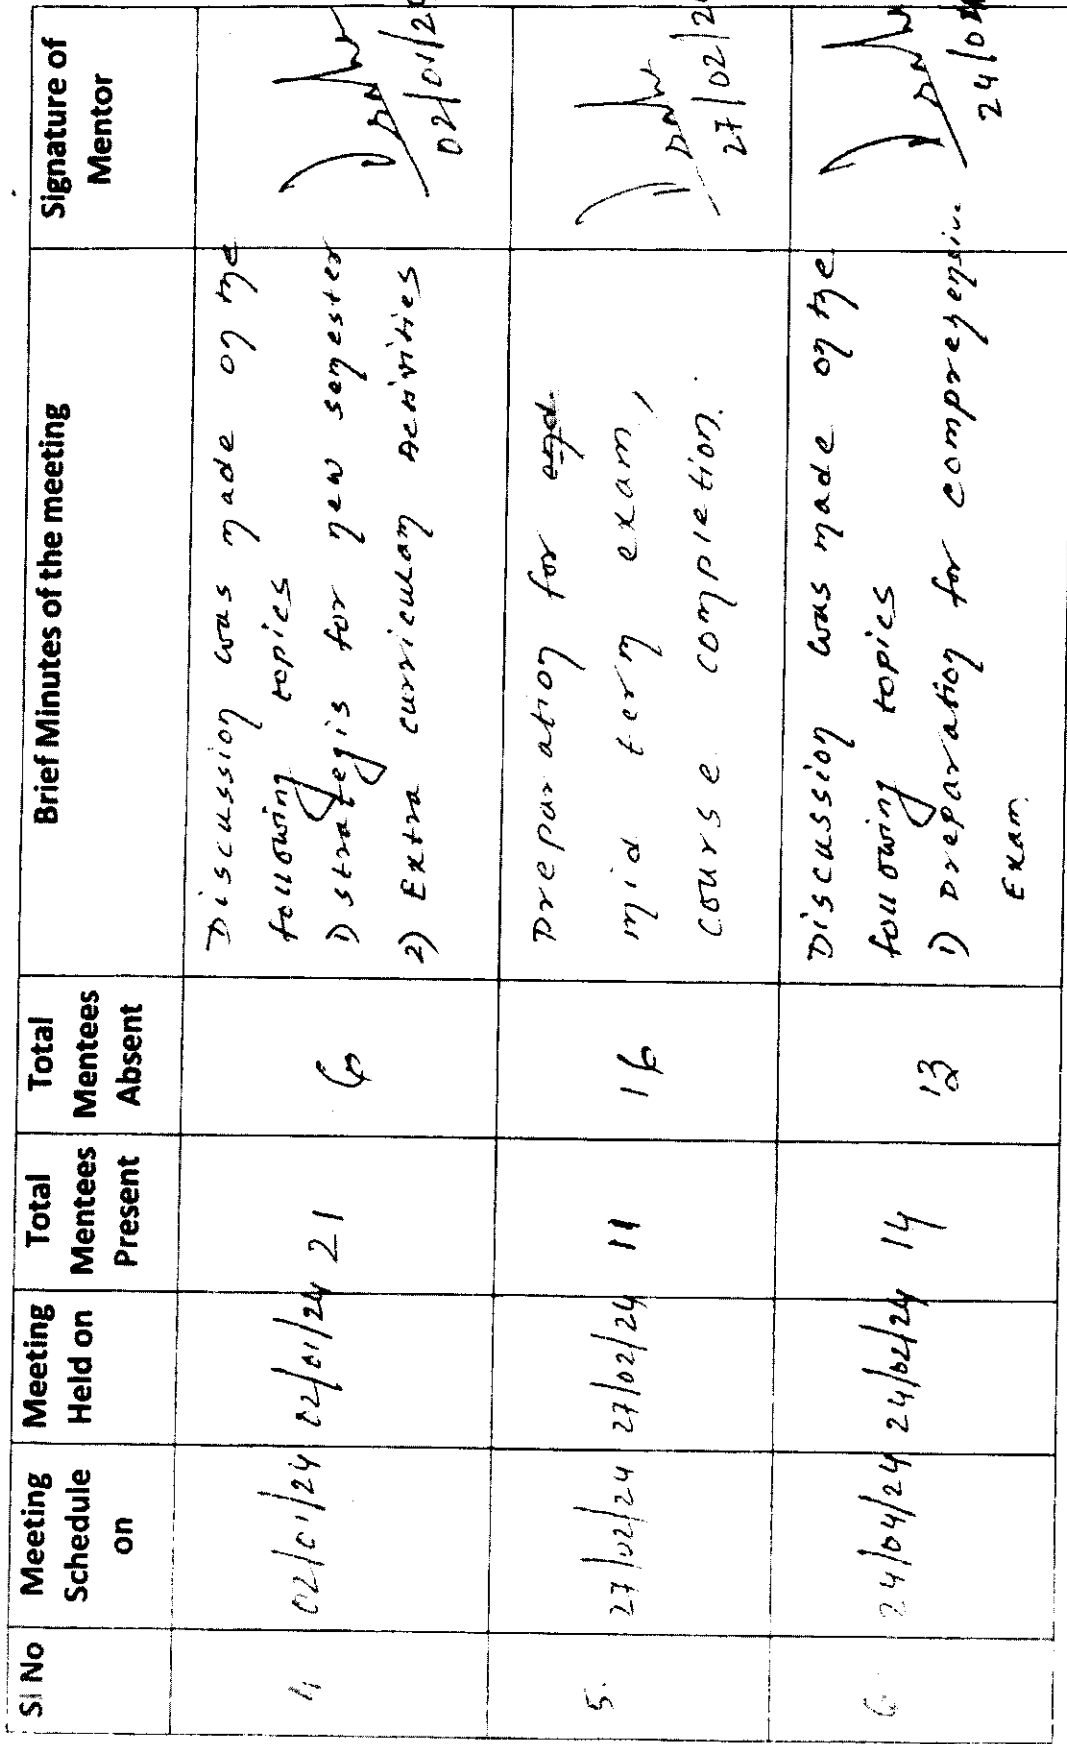 Sl No
Meeting
Schedule
on
Meeting
Held on
Total
Mentees
Present
Total
Mentees
Absent
Brief Minutes of the meeting
Signature of
Mentor
4,
02/01/24
02/01/24
21
6
Discussion was made on the
following topics
1) strategis for new semester
2) Extra curriculam Activities
02/01/2
5.
27/02/24
27/02/24
11
16
Preparation for end
mid term exam,
course completion.
27/02/2
6.
24/04/24
24/02/24
14
13
Discussion was made on the
following topics
1) Preparation for comprehensiv.
Exam.
24/04